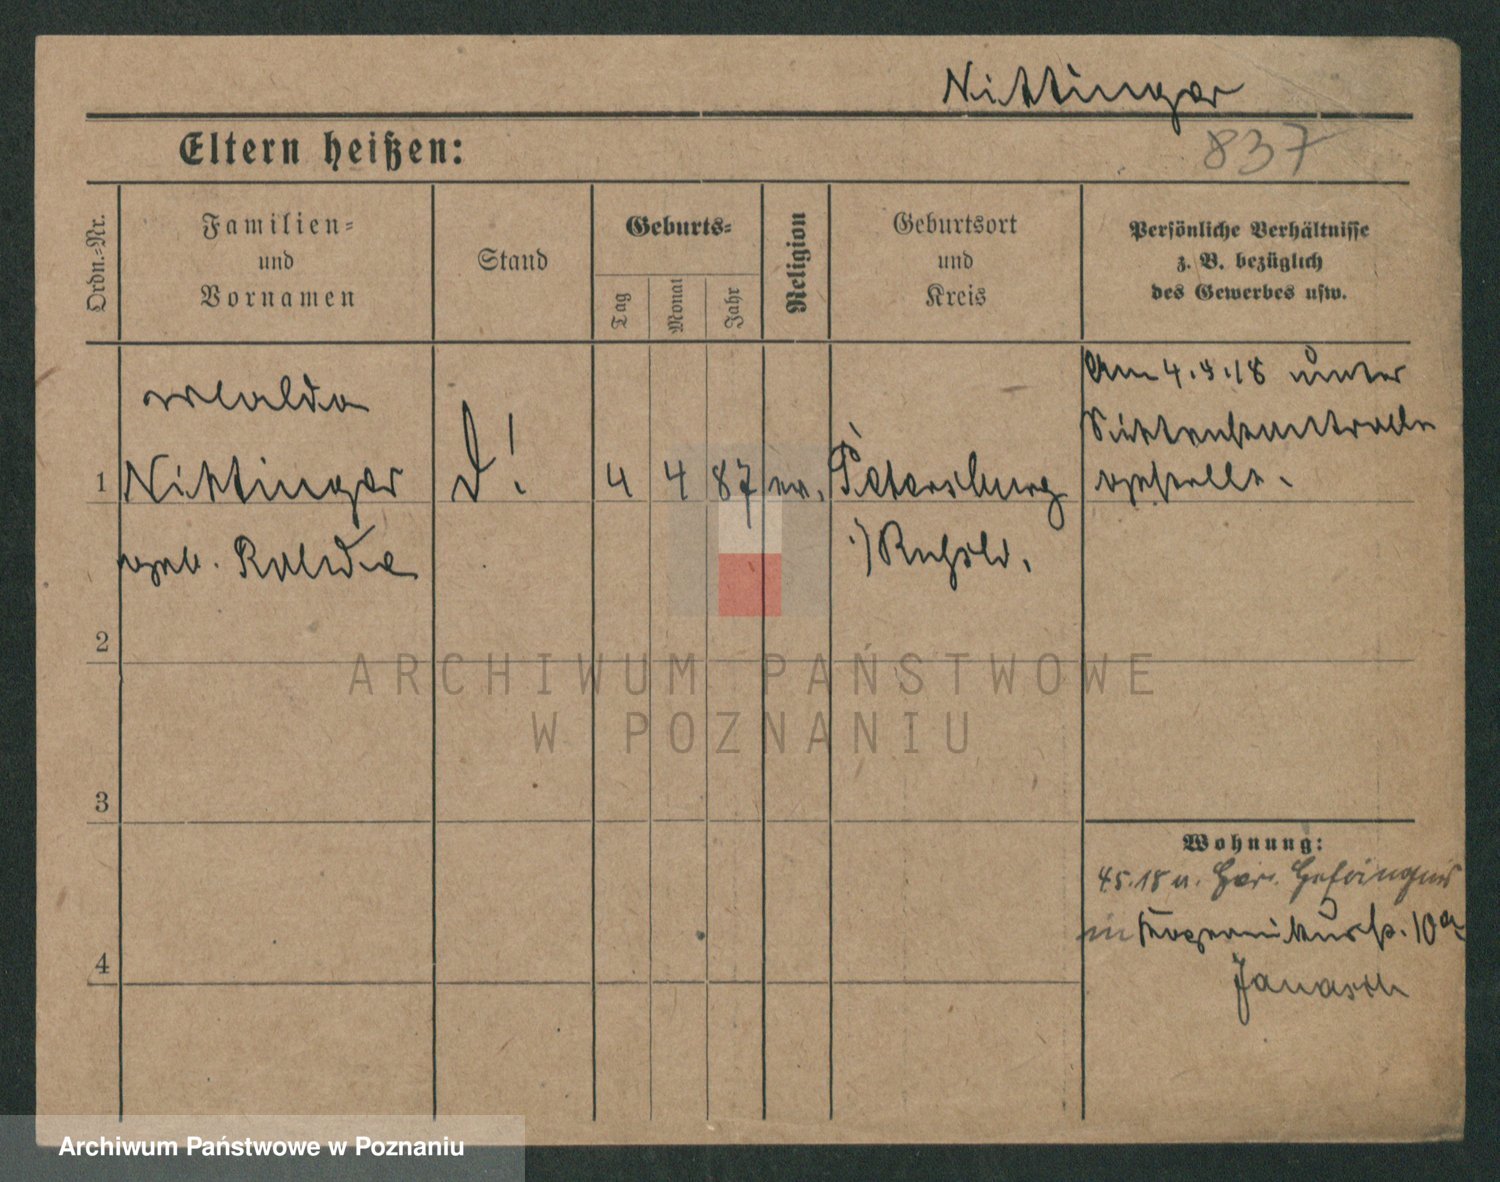 Nittinger
837
Eltern heißen:
Ordn.-Nr.
Familien-
und
Vornamen
Stand
Geburts-
Tag
Monat
Jahr
Religion
Geburtsort
und
Kreis
Persönliche Verhältnisse
z. B. bezüglich
des Gewerbes usw.
Am 4.4.18 unter
Sittenkontrolle
gestellt.
1
Nittinger
D!
4
4
87
ev.
Petersburg
geb.
i/Rußld.
2
3
4
Wohnung:
4.5.18 u. Ger. Gefängnis
in Kopernikusstr. 10a
Janasch
ARCHIWUM PAŃSTWOWE
W POZNANIU
Archiwum Państwowe w Poznaniu